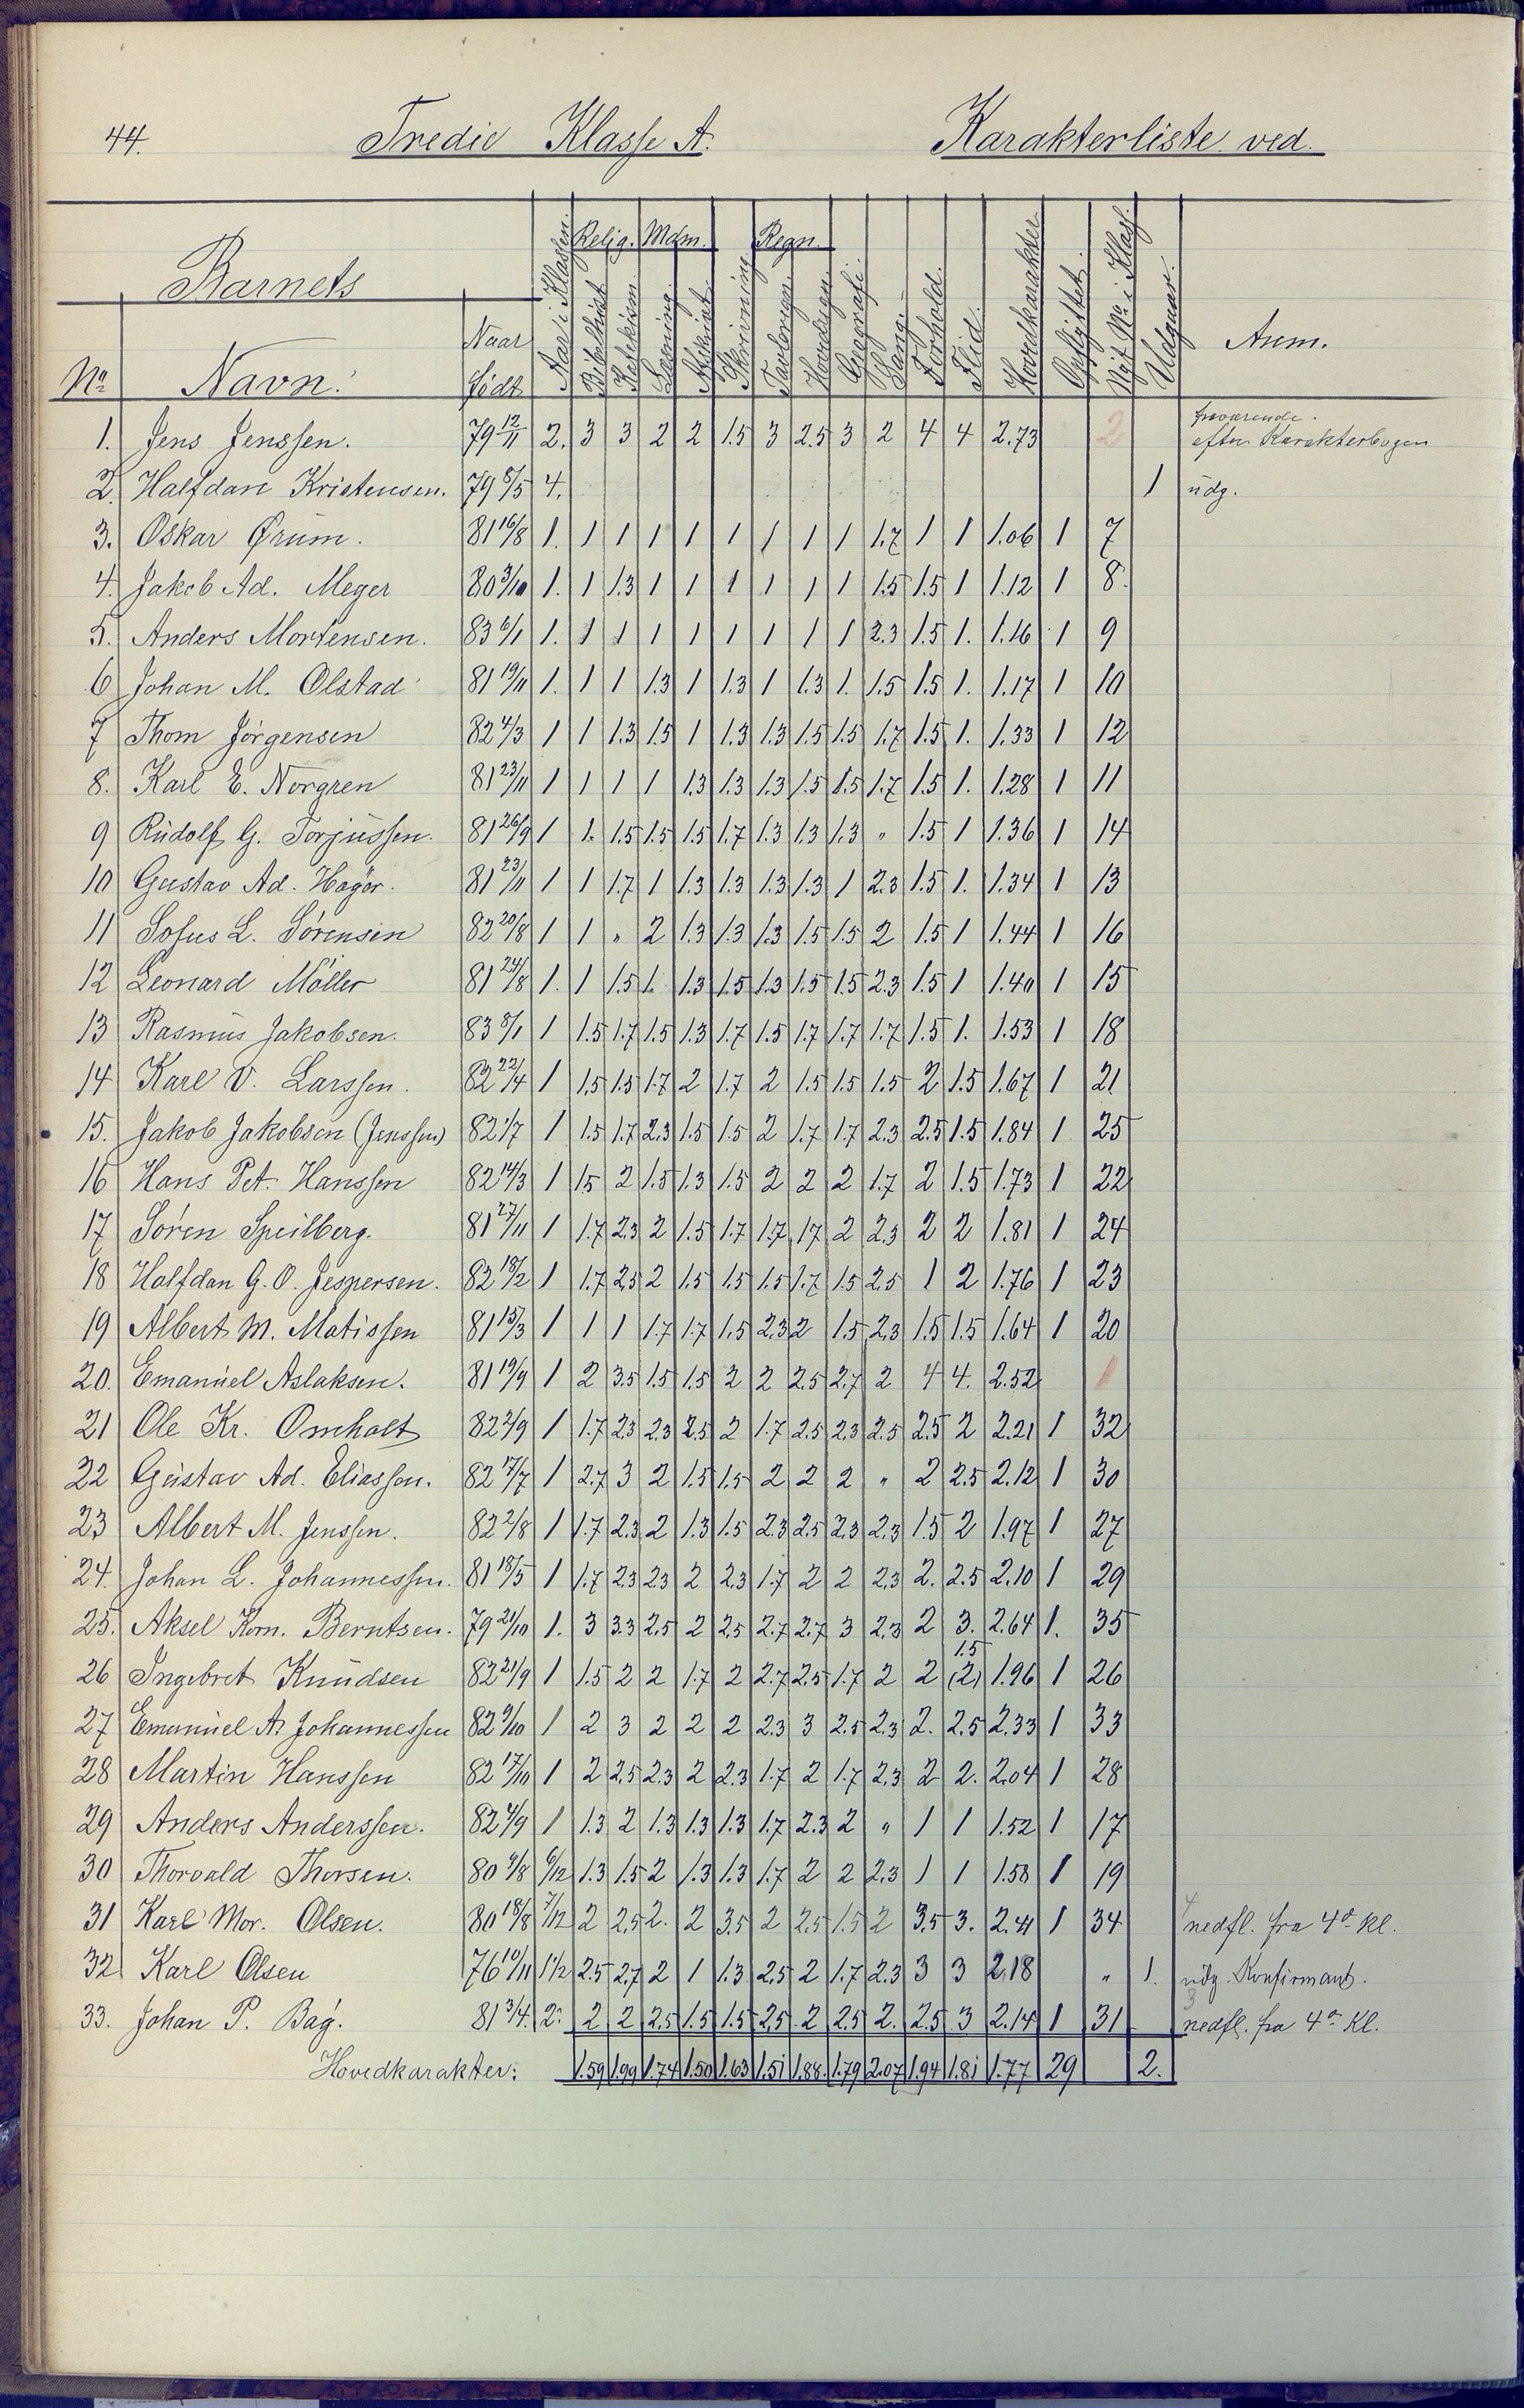 44. Tredie Klasse A. Karakterliste ved.
Relig. Mdm. Regn.
Barnets
No Navn. Naar Født Aar i Klassen Bibelhist Katekism. Læsning. Skrivning Tavleregn. Hovedregn. Geografi. Sang. Forhold. Flid. Hovedkarakter Opflyttet. Nyt No i Klas. Udgaar. Anm.
fraværende.
1. Jens Jenssen. 79 12/11 2. 3 3 2 2 1.5 3 2.5 3 2 4 4 2.73 2 efter Karakterbogen
2. Halfdan Kristensen. 79 8/5 4. 1 udg.
3. Oskar Ørum. 81 16/8 1. 1 1 1 1 1 1 1 1 1.7 1 1 1.06 1 7
4. Jakob Ad. Meger 80 3/10 1. 1 1.3 1 1 1 1 1 1 1.5 1.5 1 1.12 1 8.
5. Anders Mortensen. 83 6/1 1. 1 1 1 1 1 1 1 1 2.3 1.5 1. 1.16 1 9
6 Johan M. Olstad 81 19/11 1. 1 1 1.3 1 1.3 1 1.3 1. 1.5 1.5 1. 1.17 1 10
7 Thom Jörgensen 82 4/3 1 1 1.3 1.5 1 1.3 1.3 1.5 1.5 1.7 1.5 1. 1.33 1 12
8. Karl E. Norgren 81 23/11 1 1 1 1 1.3 1.3 1.3 1.5 1.5 1.7 1.5 1. 1.28 1 11
9 Rudolf G. Torjussen. 81 26/9 1 1. 1.5 1.5 1.5 1.7 1.3 1.3 1.3 " 1.5 1 1.36 1 14
10 Gustav Ad. Hagör. 81 23/11 1 1 1.7 1 1.3 1.3 1.3 1.3 1 2.3 1.5 1. 1.34 1 13
11 Sofus L. Sörensen 82 20/8 1 1 " 2 1.3 1.3 1.3 1.5 1.5 2 1.5 1 1.44 1 16
12 Leonard Möller 81 24/8 1. 1 1.5 1. 1.3 1.5 1.3 1.5 1.5 2.3 1.5 1 1.40 1 15
13 Rasmus Jakobsen. 83 8/1 1 1.5 1.7 1.5 1.3 1.7 1.5 1.7 1.7 1.7 1.5 1. 1.53 1 18
14 Karl V. Larssen. 82 22/4 1 1.5 1.5 1.7 2 1.7 2 1.5 1.5 1.5 2 1.5 1.67 1 21
15. Jakob Jakobsen (Jenssen) 82 1/7 1 1.5 1.7 2.3 1.5 1.5 2 1.7 1.7 2.3 2.5 1.5 1.84 1 25
16 Hans Pet. Hanssen 82 14/3 1 1.5 2 1.5 1.3 1.5 2 2 2 1.7 2 1.5 1.73 1 22
17 Sören Speilberg. 81 27/11 1 1.7 2.3 2 1.5 1.7 1.7 1.7 2 2.3 2 2 1.81 1 24
18 Halfdan G. O. Jespersen. 82 18/2 1 1.7 2.5 2 1.5 1.5 1.5 1.7 1.5 2.5 1 2 1.76 1 23
19 Albert M. Matissen 81 15/3 1 1 1 1.7 1.7 1.5 2.3 2 1.5 2.3 1.5 1.5 1.64 1 20
20. Emanuel Aslaksen. 81 19/9 1 2 3.5 1.5 1.5 2 2 2.5 2.7 2 4 4. 2.52 1
21 Ole Kr. Omholt 82 2/9 1 1.7 2.3 2.3 2.5 2 1.7 2.5 2.3 2.5 2.5 2 2.21 1 32
22 Gustav Ad. Eliassen. 82 17/7 1 2.7 3 2 1.5 1.5 2 2 2 " 2 2.5 2.12 1 30
23 Albert M. Jenssen. 82 2/8 1 1.7 2.3 2 1.3 1.5 2.3 2.5 2.3 2.3 1.5 2 1.97 1 27
24. Johan L. Johannessen. 81 18/5 1 1.7 2.3 2.3 2 2.3 1.7 2 2 2.3 2. 2.5 2.10 1 29
25. Aksel Korn. Berntsen. 79 21/10 1. 3 3.3 2.5 2 2.5 2.7 2.7 3 2.3 2 3. 2.64 1. 35
1.5
26 Ingebret Knudsen 82 21/9 1 1.5 2 2 1.7 2 2.7 2.5 1.7 2 2 (2) 1.96 1 26
27 Emanuel A. Johannessen 82 9/10 1 2 3 2 2 2 2.3 3 2.5 2.3 2. 2.5 2.33 1 33
28 Martin Hanssen 82 17/10 1 2 2.5 2.3 2 2.3 1.7 2 1.7 2.3 2 2. 2.04 1 28
29 Anders Anderssen. 82 4/9 1 1.3 2 1.3 1.3 1.3 1.7 2.3 2 " 1 1 1.52 1 17
30 Thorvald Thorsen. 80 9/8 6/12 1.3 1.5 2 1.3 1.3 1.7 2 2 2.3 1 1 1.58 1 19
31 Karl Mor. Olsen. 80 18/8 7/12 2 2.5 2. 2 3.5 2 2.5 1.5 2 3.5 3. 2.41 1 34 nedfl. fra 4de Kl.
32 Karl Olsen 76 10/11 1 1/2 2.5 2.7 2 1 1.3 2.5 2 1.7 2.3 3 3 2.18 " 1. udg. Konfirmant.
33. Johan P. Bag. 81 3/4. 2. 2 2 2.5 1.5 1.5 2.5 2 2.5 2. 2.5 3 2.14 1 31 nedfl. fra 4de Kl.
Hovedkarakter: 1.59 1.99 1.74 1.50 1.63 1.51 1.88. 1.79 2.07 1.94 1.81 1.77 29 2.